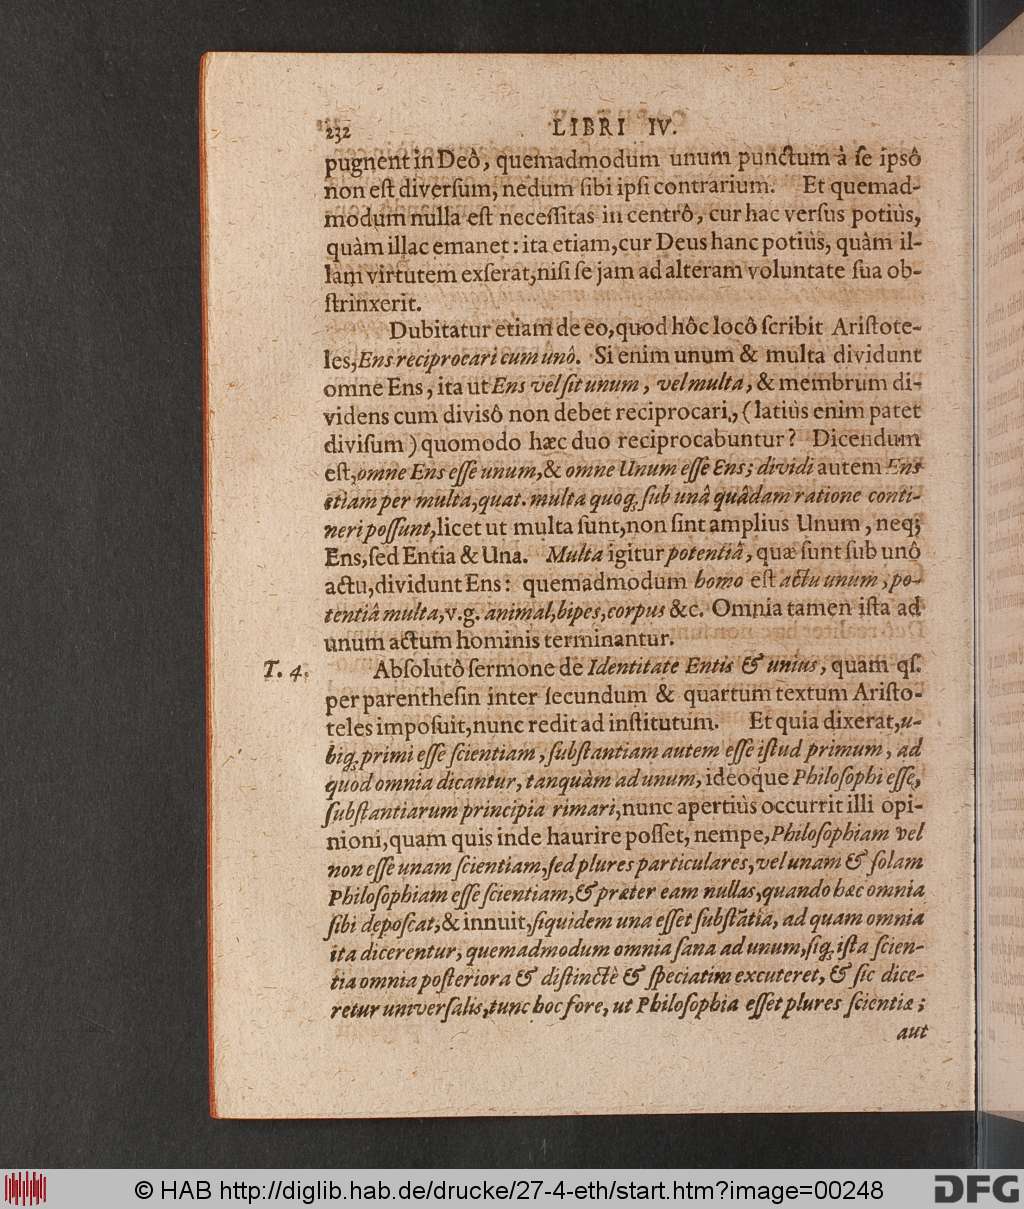 232 LIBRI IV.
pugnent in Deô, quemadmodum unum punctum à ſe ipsô
non eſt diverſum, nedum ſibi ipſi contrarium. Et quemad-
modum nulla eſt neceſſitas in centrô, cur hac verſus potiùs,
quàm illac emanet: ita etiam, cur Deus hanc potiùs, quàm il-
lam virtutem exſerat, niſi ſe jam ad alteram voluntate ſua ob-
ſtrinxerit.
Dubitatur etiam de eo, quod hôc locô ſcribit Ariſtote-
les, Ens reciprocari cum unô. Si enim unum & multa dividunt
omne Ens, ita ut Ens vel ſit unum, vel multa, & membrum di-
videns cum divisô non debet reciprocari, (latiùs enim patet
diviſum) quomodo hæc duo reciprocabuntur? Dicendum
eſt, omne Ens eſſe unum, & omne Unum eſſe Ens; dividi autem Ens
etiam per multa, quat. multa quoq; ſub unâ quâdam ratione conti-
neri poſſunt, licet ut multa ſunt, non ſint amplius Unum, neq;
Ens, ſed Entia & Una. Multa igitur potentiâ, quæ ſunt ſub unô
actu, dividunt Ens: quemadmodum homo eſt actu unum, po-
tentiâ multa, v.g. animal, bipes, corpus &c. Omnia tamen iſta ad
unum actum hominis terminantur.
T. 4. Abſolutô ſermone de Identitate Entis & unius, quam qſ.
per parentheſin inter ſecundum & quartum textum Ariſto-
teles impoſuit, nunc redit ad inſtitutum. Et quia dixerat, u-
biq; primi eſſe ſcientiam, ſubſtantiam autem eſſe iſtud primum, ad
quod omnia dicantur, tanquàm ad unum, ideoque Philoſophi eſſe,
ſubſtantiarum principia rimari, nunc apertiùs occurrit illi opi-
nioni, quam quis inde haurire poſſet, nempe, Philoſophiam vel
non eſſe unam ſcientiam, ſed plures particulares, vel unam & ſolam
Philoſophiam eſſe ſcientiam, & præter eam nullas, quando hæc omnia
ſibi depoſcat, & innuit, ſiquidem una eſſet ſubſtãtia, ad quam omnia
ita dicerentur, quemadmodum omnia ſana ad unum, ſiq; iſta ſcien-
tia omnia poſteriora & diſtinctè & ſpeciatim excuteret, & ſic dice-
retur univerſalis, tunc hoc fore, ut Philoſophia eſſet plures ſcientiæ;
aut
© HAB http://diglib.hab.de/drucke/27-4-eth/start.htm?image=00248 DFG